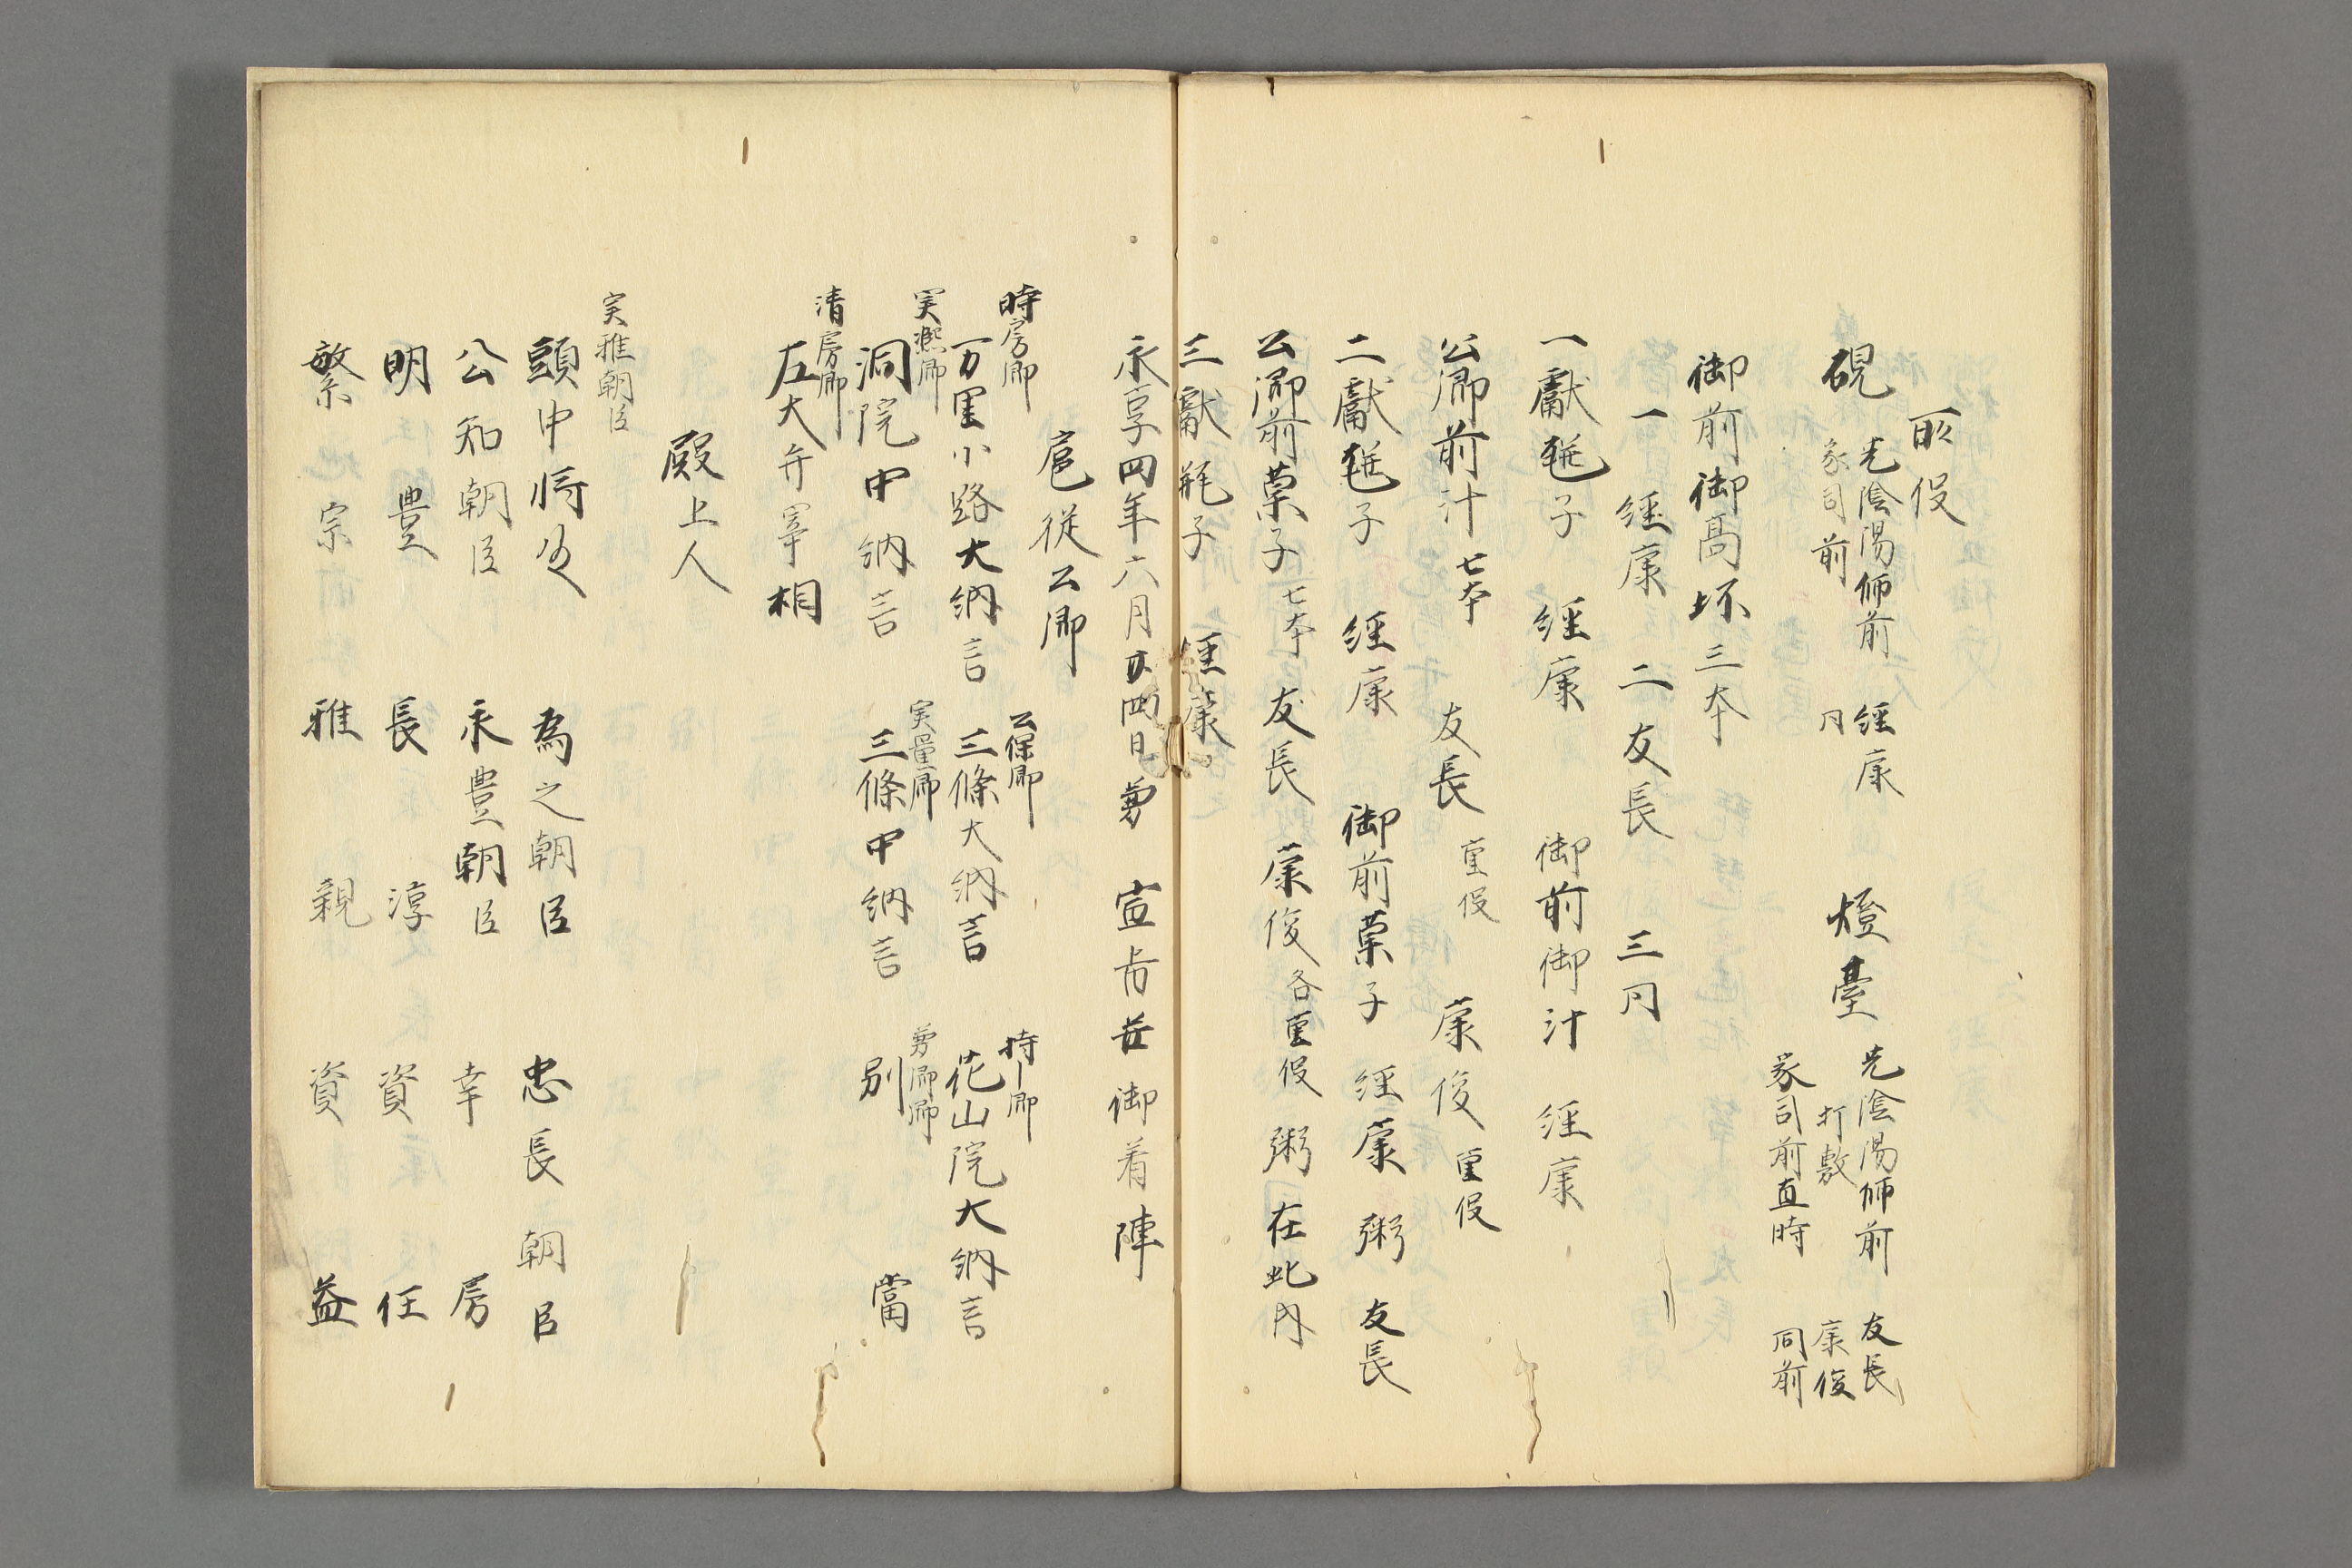 所役
硯 先陰陽師前 経康
家司前 同
燈臺 先陰陽師前 友長
打敷 康俊
家司前直時 同前
御前御高坏三本
一 経康 二 友長 三 同
一獻瓶子 経康 御前御汁 経康
公卿前汁七本 友長 重役 康俊 重役
二獻瓶子 経康 御前菓子 経康 粥 友長
公卿前菓子七本 友長 康俊各重役 粥在此内
三獻瓶子 経康
永享四年六月廿四日 宣
御着陣
扈従公卿
時房卿 公保卿 持ー卿
万里小路大納言 三條大納言 花山院大納言
実熙卿 実量卿
洞院中納言 三條中納言 別當
清房卿
左大弁宰相
殿上人
実雅朝臣
頭中将 為之朝臣 忠長朝臣
公知朝臣 永豊朝臣 幸房
明豊 長淳 資任
繁宗 雅親 資益